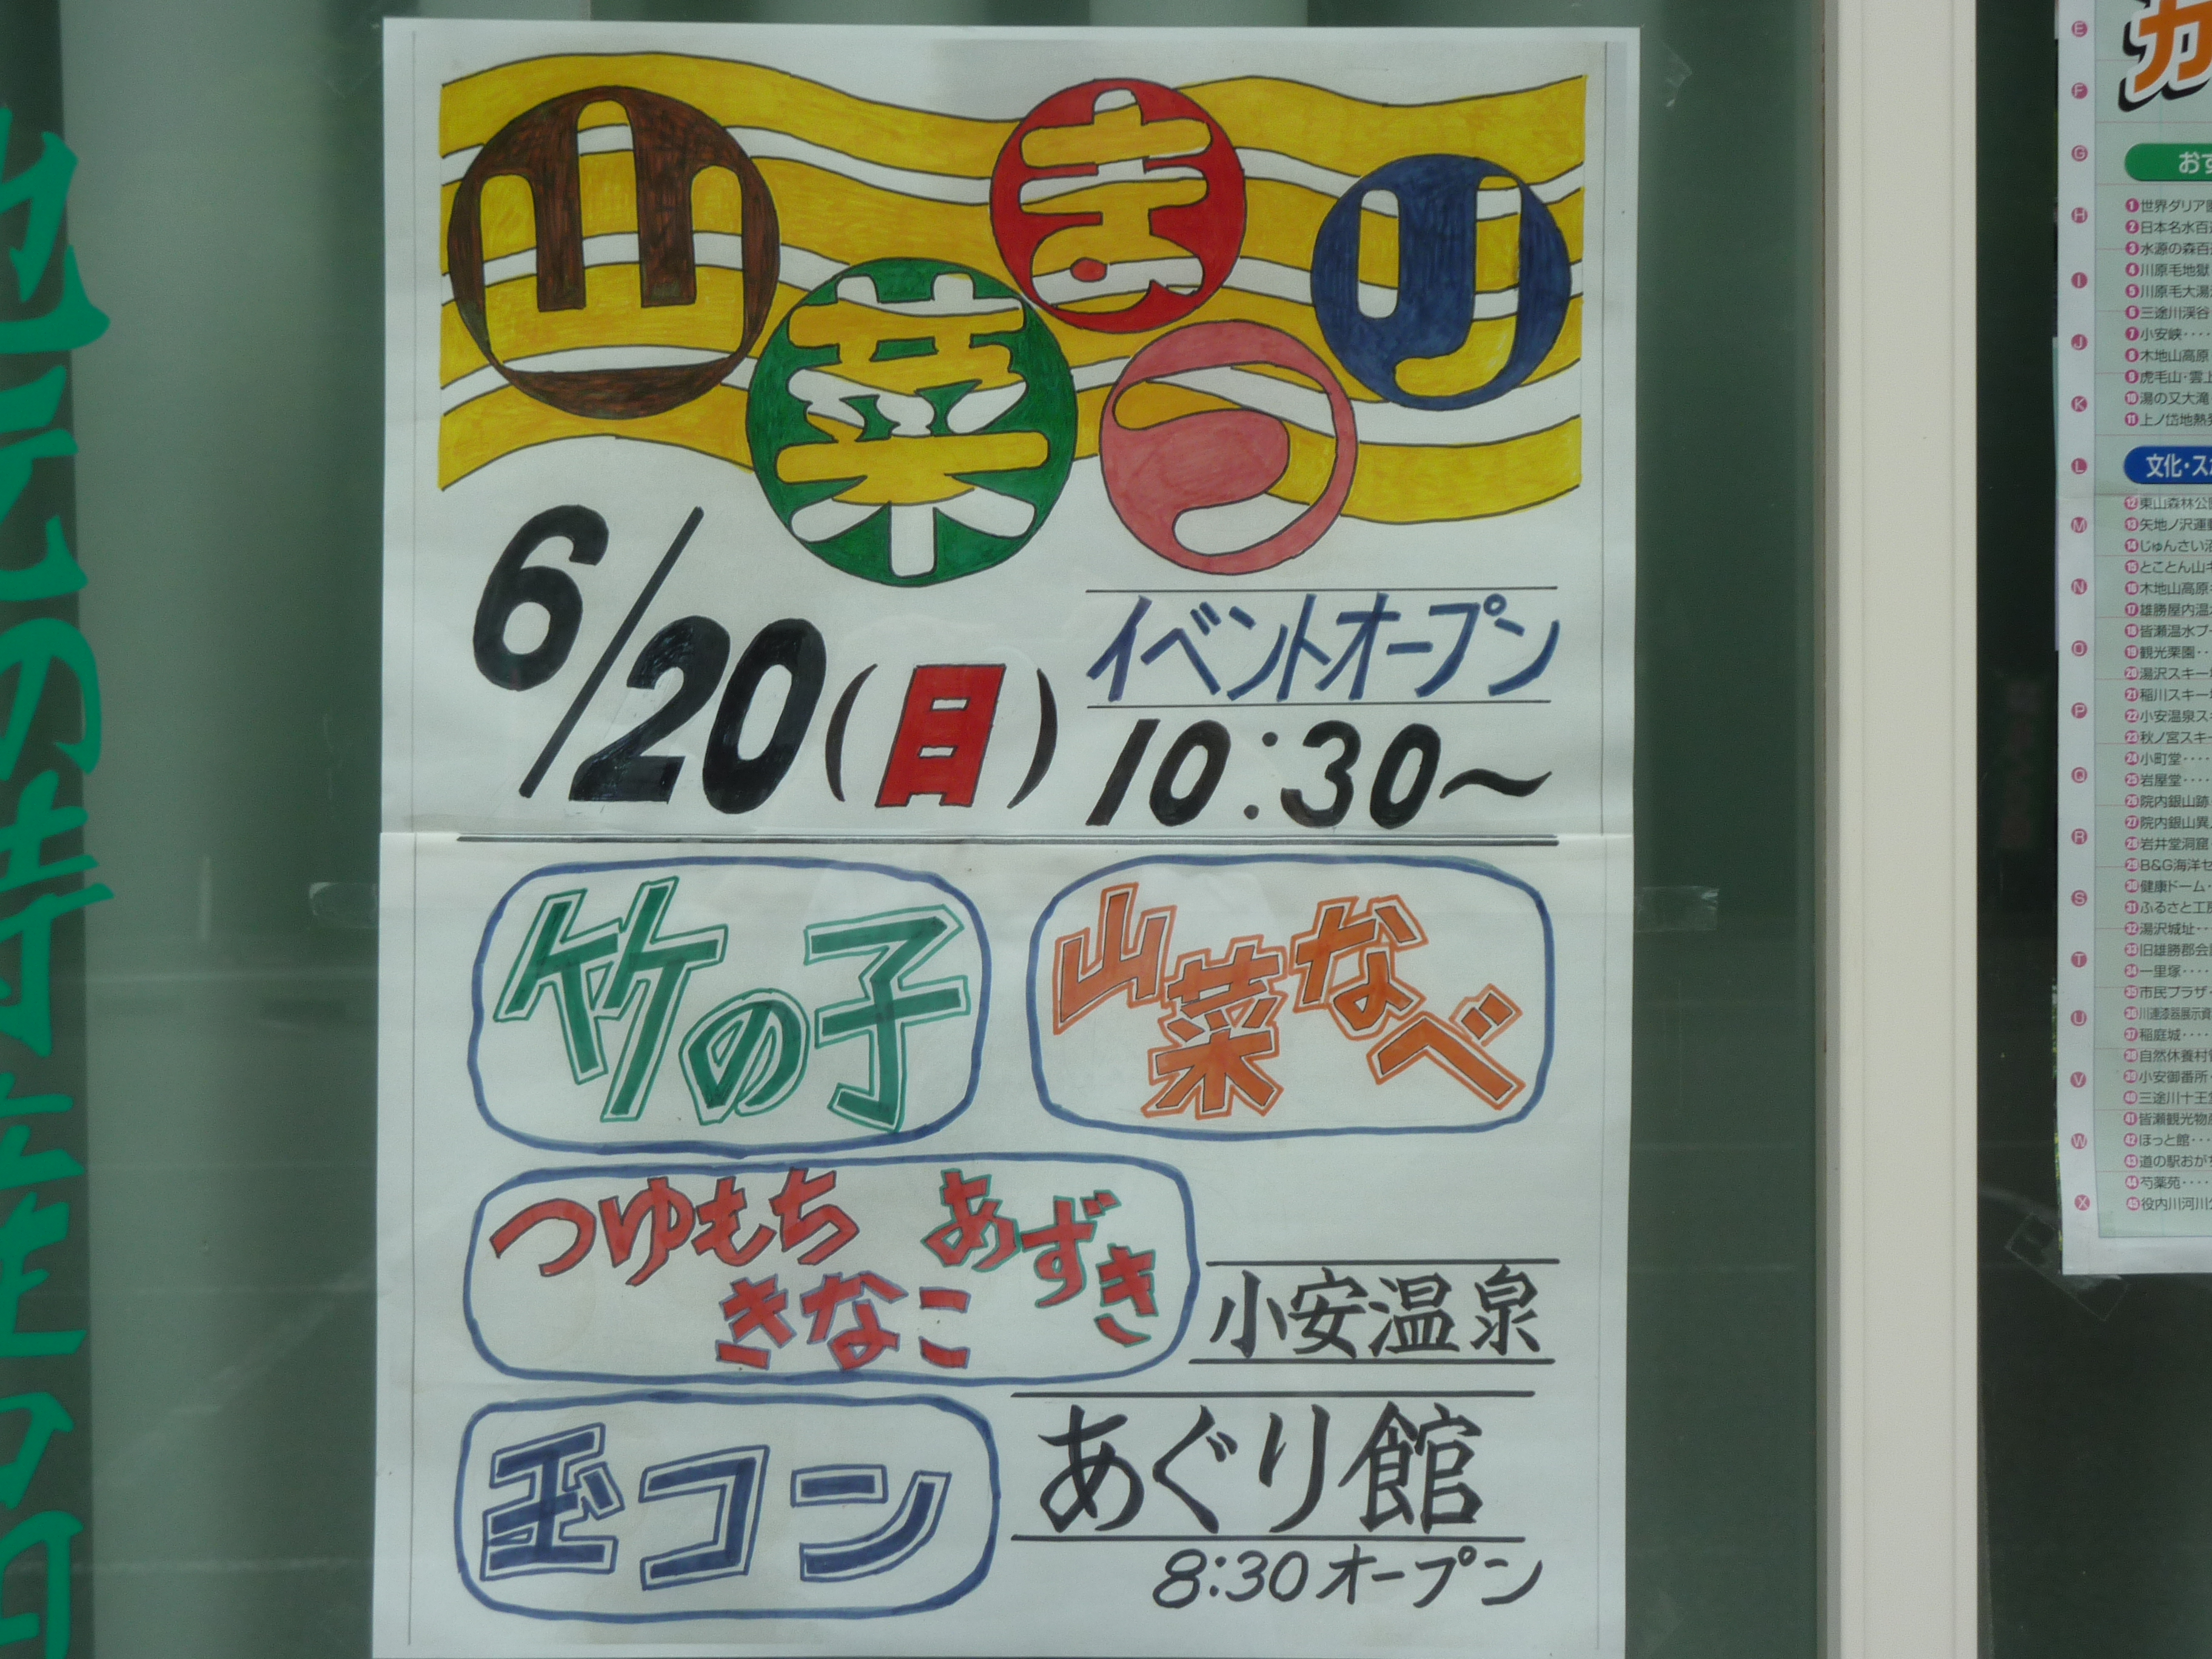 山菜まつり
6/20(日)
イベントオープン
10:30〜
竹の子
山菜なべ
つゆもち
あずき
きなこ
小安温泉
玉コン
あぐり館
8:30オープン
地元の特産の
カ
おす
文化・ス
E
F
G
H
I
J
K
L
M
N
O
P
Q
R
S
T
U
V
W
X
1世界ダリア園
2日本名水百
3水源の森百
4川原毛地獄
5川原毛大湯
6三途川渓谷
7小安峡‥‥
8木地山高原
9虎毛山・雲上
10湯の又大滝
11上ノ岱地熱
12東山森林公園
13矢地ノ沢運
14じゅんさい沼
15とことん山キ
16木地山高原
17雄勝屋内温
18皆瀬温水プー
19観光栗園‥
20湯沢スキー
21稲川スキー
22小安温泉ス
23秋ノ宮スキー
24小町堂‥‥
25岩屋堂‥‥
26院内銀山跡
27院内銀山異
28岩井堂洞窟
29B&G海洋セ
30健康ドーム
31ふるさと工房
32湯沢城址‥
33旧雄勝郡会
34一里塚‥‥
35市民プラザ
36川連漆器展示資
37稲庭城‥‥
38自然休養村
39小安御番所
40三途川十王
41皆瀬観光物
42ほっと館‥
43道の駅おが
44芍薬苑‥‥
45役内川河川